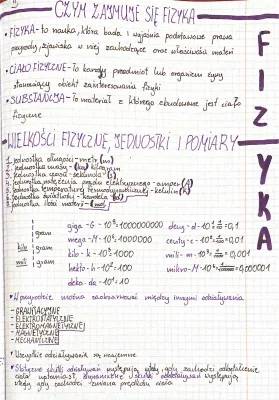 CZYM ZAJMUJE SIĘ FIZYKA
• FIZYKA - to nauka, która bada i wyjaśnia podstawowe prawa
przyrody, zjawiska w niej zachodzące oraz właściwości materii
• CIAŁO FIZYCZNE - to każdy przedmiot lub organizm żywy
stanowiący obiekt zainteresowania fizyki
• SUBSTANCJA - to materiał z którego zbudowane jest ciało
fizyczne
FIZYKA
WIELKOŚCI FIZYCZNE, JEDNOSTKI I POMIARY
jednostka długości - metr (m)
jednostka masy - (kg) kilogram
jednostka czasu - sekunda (s)
jednostka natężenia prądu elektrycznego - amper (A)
jednostka temperatury termodynamicznej - kelwin (K)
jednostka światłości - kandela (cd)
jednostka ilości materii - (mol)
giga - G - 10⁹ = 1000000000
mega - M - 10⁶ = 1000000
kilo - k - 10³ = 1000
hekto - h - 10² = 100
deka - da - 10¹ = 10
decy - d - = 0,1
centy - c - = 0,01
mili - m - = 0,001
mikro - M -
kilo | gram
mili | gram
• W przyrodzie można zaobserwować między innymi oddziaływania
- GRAWITACYJNE
- ELEKTROSTATYCZNE
- ELEKTROMAGNETYCZNE
- MAGNETYCZNE
- MECHANICZNE
• Wszystkie oddziaływania są wzajemne
• Statyczne skutki oddziaływań występują wtedy, gdy zachodzi odkształcenie
ciała, natomiast dynamiczne skutki oddziaływań występują
wtedy, gdy zachodzi zmiana prędkości ciała